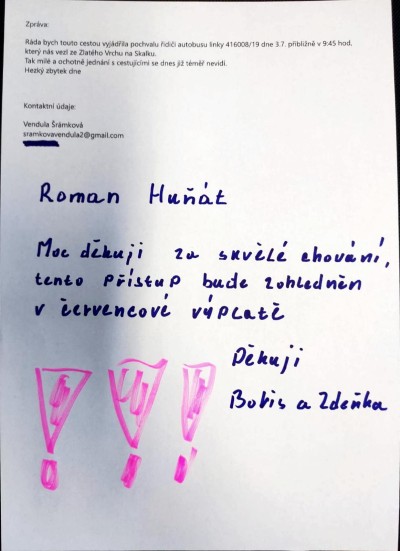 Zpráva:
Ráda bych touto cestou vyjádřila pochvalu řidiči autobusu linky 416008/19 dne 3.7. přibližně v 9:45 hod,
který nás vezl ze Zlatého Vrchu na Skalku.
Tak milé a ochotné jednání s cestujícími se dnes již téměř nevidí.
Hezký zbytek dne
Kontaktní údaje:
Vendula Šrámková
sramkovavendula2@gmail.com
Roman Huňát
Moc děkuji za skvělé chování,
tento přístup bude zohledněn
v červencové výplatě
Děkuji
Boris a Zdeňka
!!!